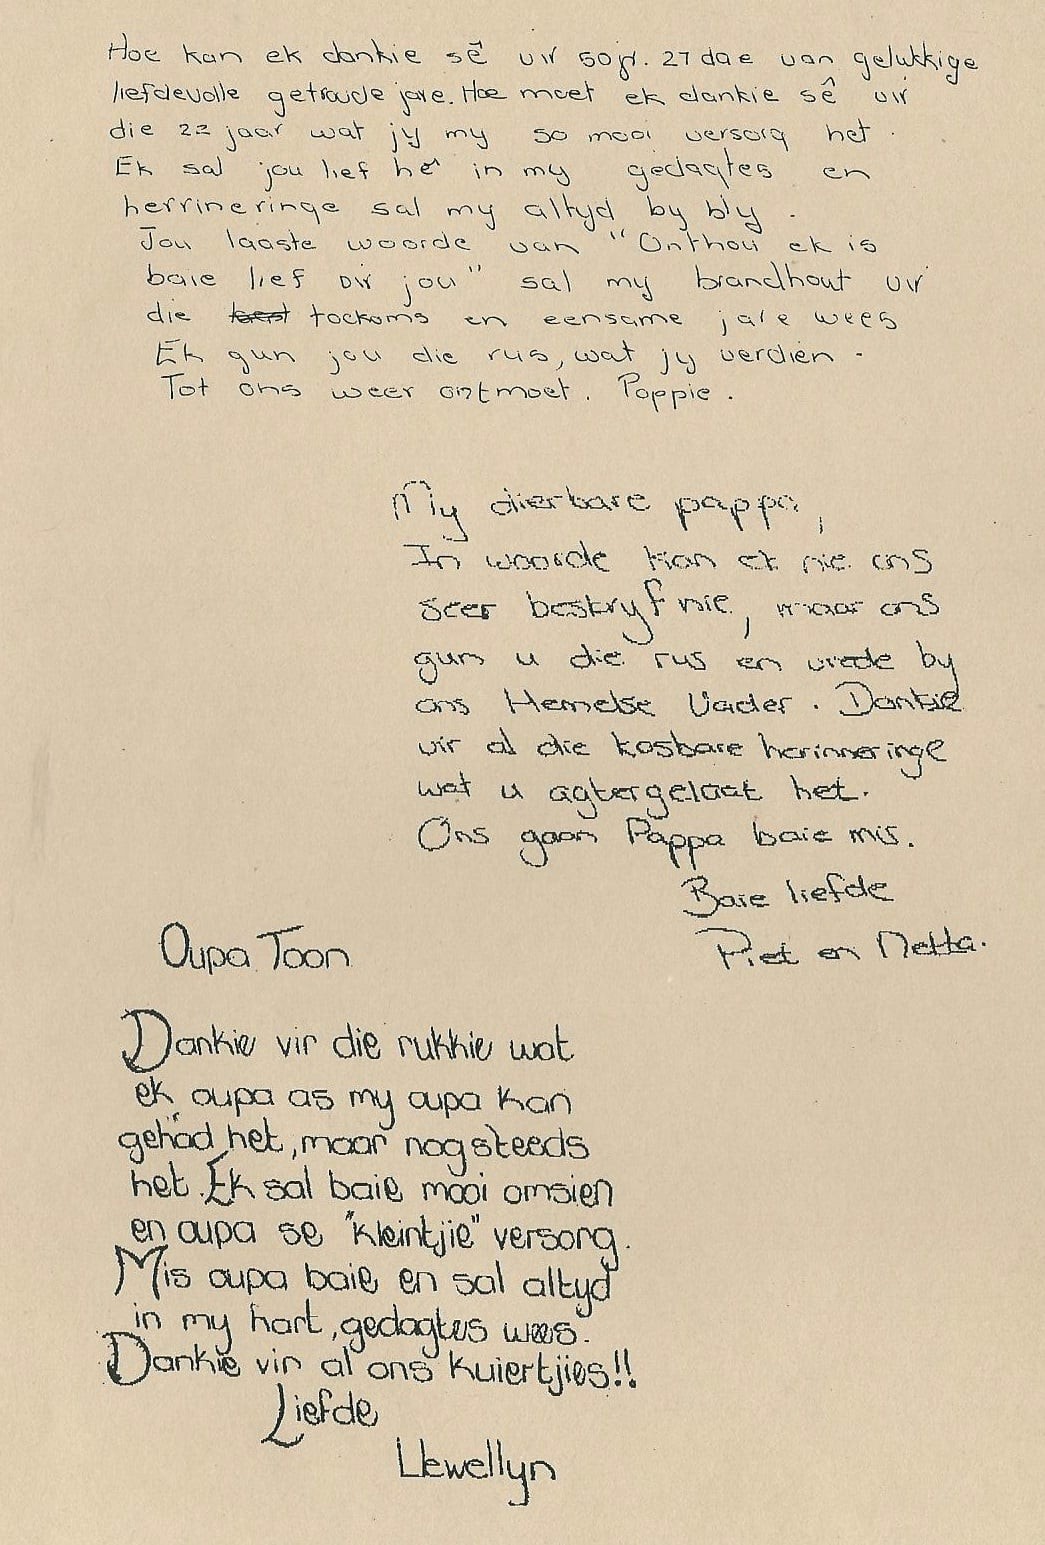 Hoe kan ek dankie sê vir 50jr. 27 dae van gelukkige
liefdevolle getroude jare. Hoe moet ek dankie sê vir
die 22 jaar wat jy my so mooi versorg het.
Ek sal jou lief hê in my gedagtes en
herrineringe sal my altyd by bly.
Jou laaste woorde van "Onthou ek is
baie lief vir jou" sal my brandhout vir
die toekoms en eensame jare wees
Ek gun jou die rus, wat jy verdien.
Tot ons weer ontmoet. Poppie.
My dierbare pappa,
In woorde kan ek nie ons
seer beskryf nie, maar ons
gun u die rus en vrede by
ons Hemelse Vader. Dankie
vir al die kosbare herinneringe
wat u agtergelaat het.
Ons gaan Pappa baie mis.
Baie liefde
Piet en Netta.
Oupa Toon
Dankie vir die rukkie wat
ek oupa as my oupa kan
gehad het, maar nogsteeds
het. Ek sal baie mooi omsien
en oupa se "kleintjie" versorg.
Mis oupa baie en sal altyd
in my hart, gedagtes wees.
Dankie vir al ons kuiertjies!!
Liefde
Llewellyn